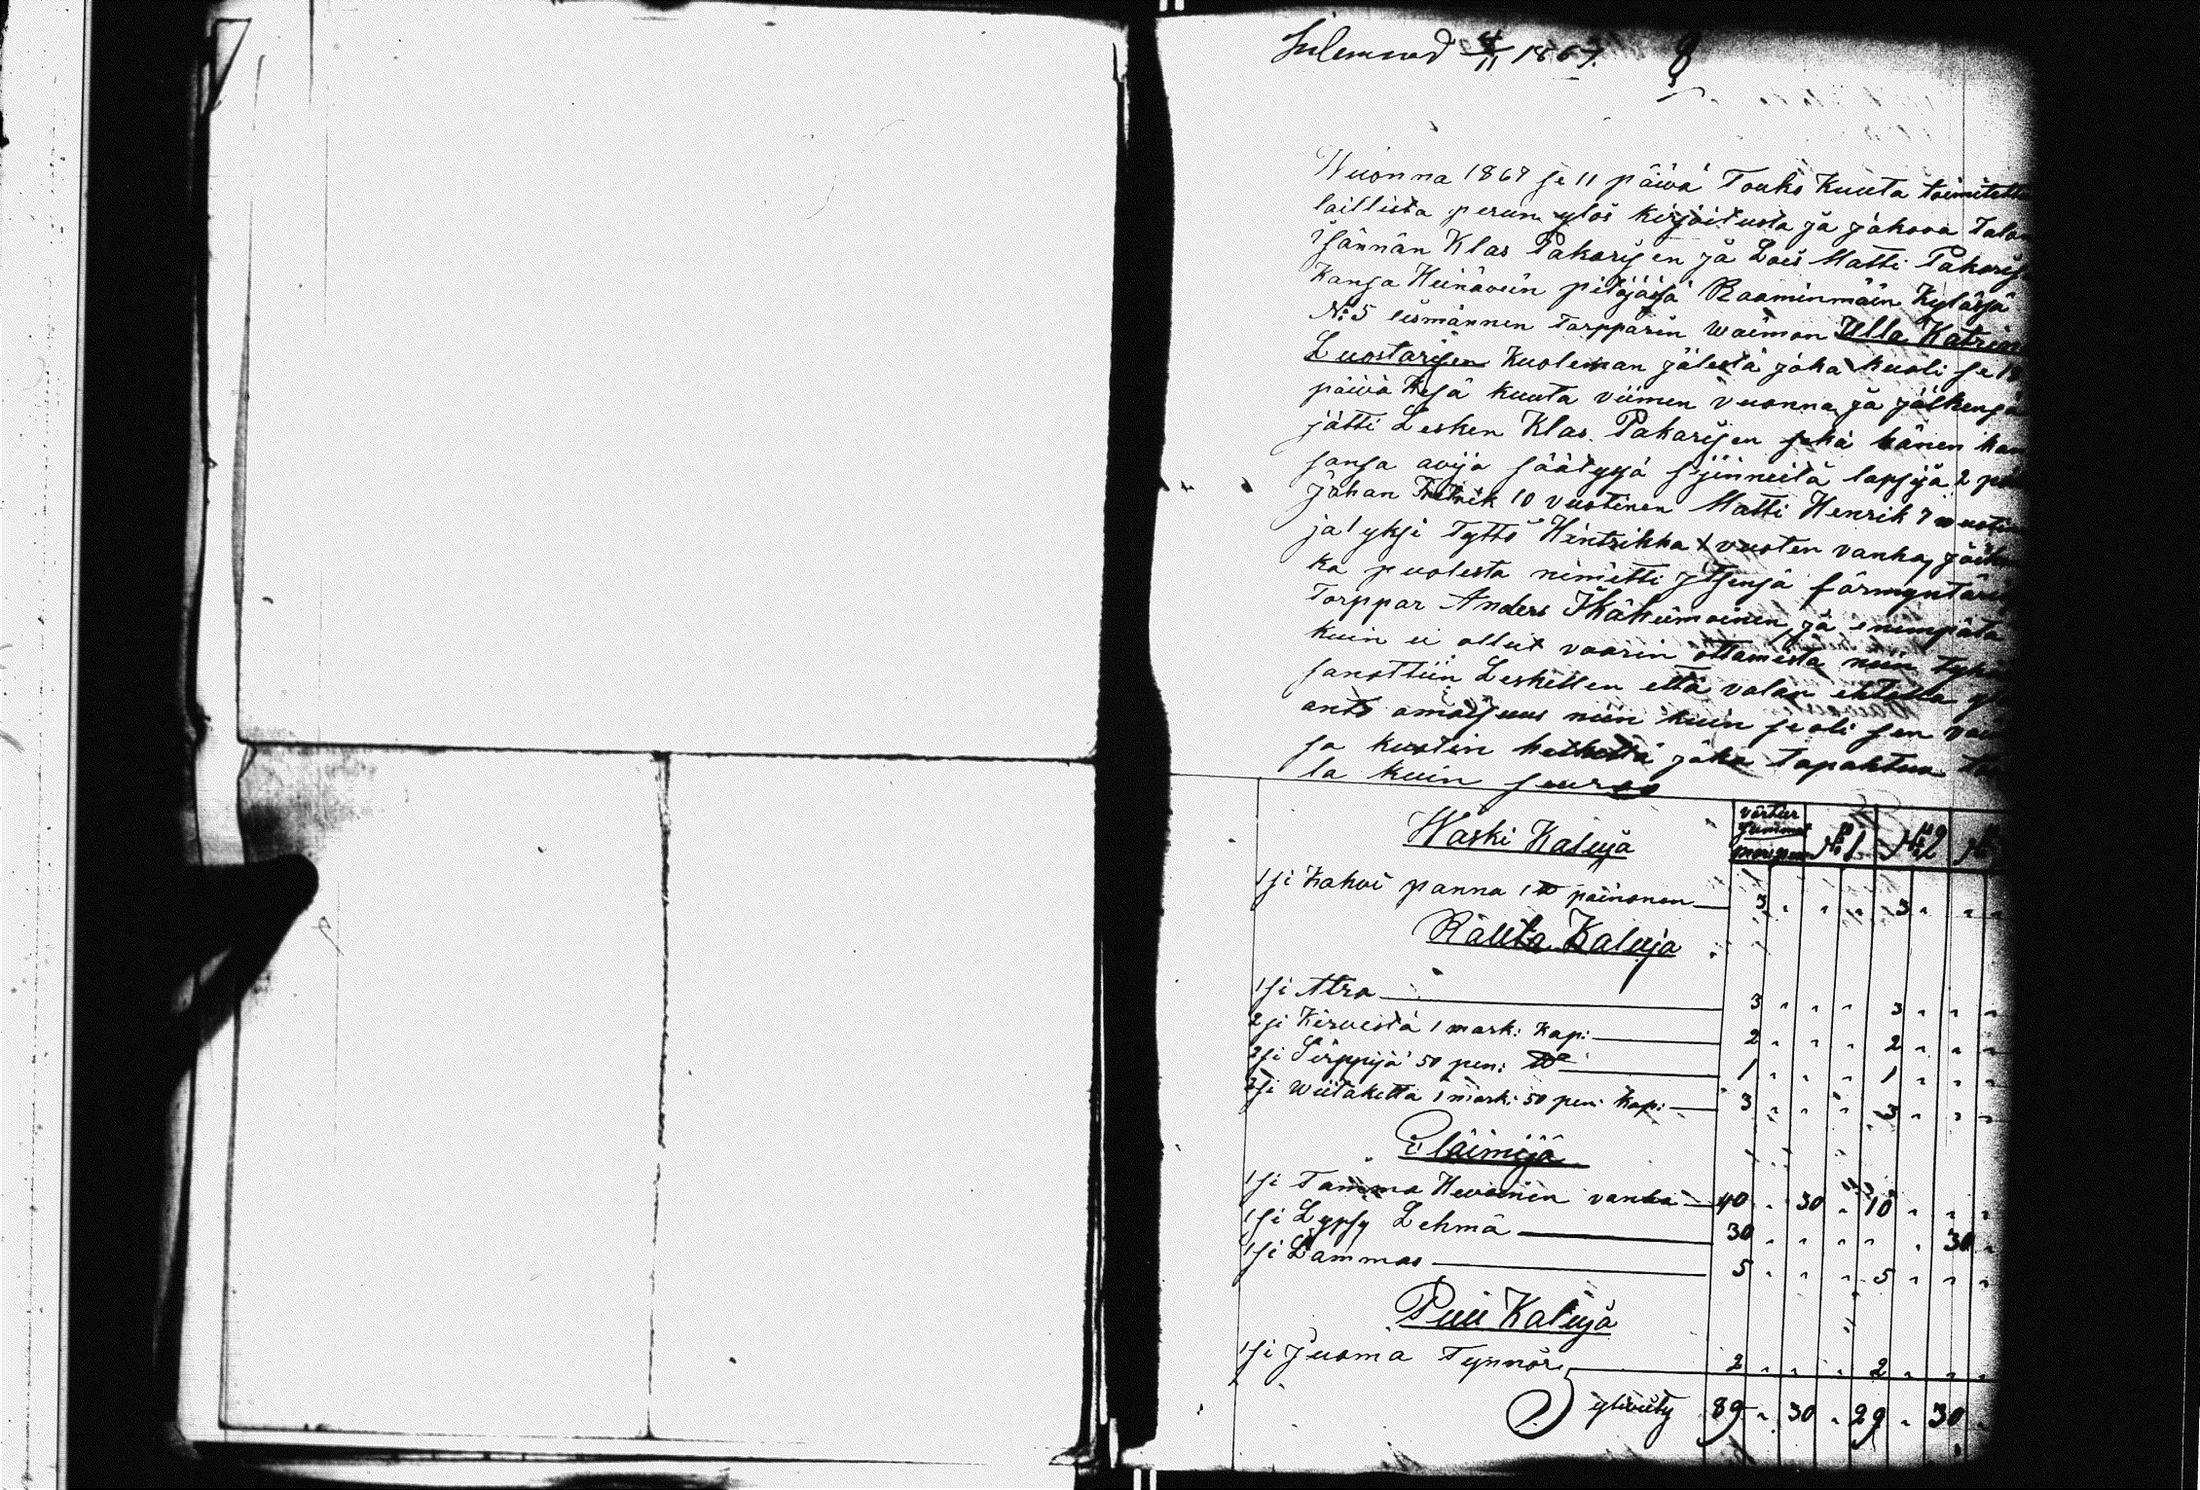 Inlemnad 4/11 1867. 8
Wuonna 1867 se 11 päivä Touko Kuuta toimitettu
laillista perun ylös kirjoitusta ja jakova Talon
Isännän Klas Pakarisen ja Lois Matti Pakarisen
Kansa Heinävein pitäjässä Raaminmäin Kylässä
No 5 Torpparin Waimon Ulla Katrina
Luostarisen Kuoleman jälestä joka kuoli se 18
päivä Kesä kuuta viimen vuonna ja jälkensä
jätti Lesken Klas Pakarisen sekä hänen kan
sansa avijo säätysä sijinneitä lapsija 2 poi
Johan Fretrik 10 vuotinen Matti Henrik 7 vuotinen
ja yksi Tyttö Hintrikka vuoten vanha, joitten
ka puolesta nimetti Itsensä förmyntäri
Torppar Anders Ikäheimoinen, ja enempätä
kuin ei ollut vaarin ottamista niin
sanottiin Leskellen että valan ehtolla
anto omaisuus niin kuin se oli sen
sa kuolin hetkellä joka tapahtuu
la kuin seuraa
Waski Kaluja
No 1 No 2
1 si Kahvi panna 1 painonen 3 " " " 3 " "
Rauta Kaluja
1 si Atra 3 " " " 3 " " "
2 si Kirvestä 1 mark: Kap: 2 " " " 2 " " "
2 si Sirppijä 50 pen: 1 " " " 1 " " "
2 si Wiitaketta 1 mark: 50 pen: Kap: 3 " " " 3 " " "
Eläimijä
1 si Tamma Hevoinen vanha 40 " 30 " 10 " " "
1 si Lypsy Lehmä 30 " " " " " 30 "
1 si Lammas 5 " " " 5 " " "
Puu Kaluja
1 si Juoma Tynnöri 2 " " " 2 " " "
yliviety 89 " 30 " 29 " 30 "